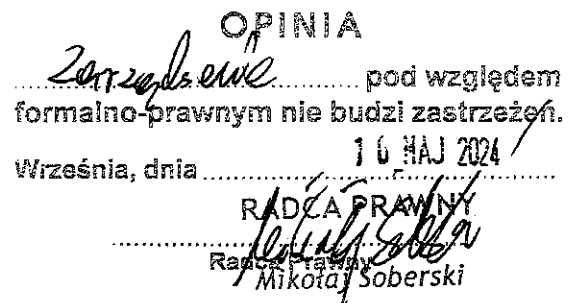 OPINIA
Zarządzenie pod względem
formalno-prawnym nie budzi zastrzeżeń.
Września, dnia 16 MAJ 2024
RADCA PRAWNY
Radca Prawny
Mikołaj Soberski